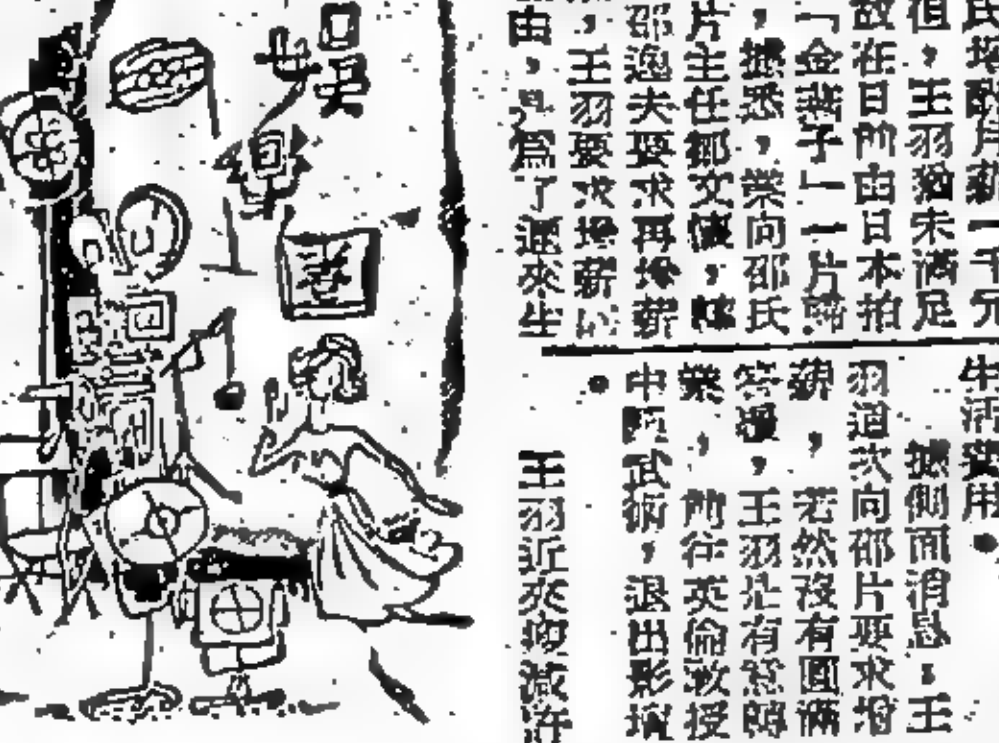 氏增酬月薪一千元
但,王羽猶未滿足
故在日前由日本拍
「金燕子」一片歸
,據悉,業向邵氏
片主任鄒文懷,轉
邵逸夫要求再增薪
,王羽要求增薪
由,是爲了邇來生
生活費用●
據側面消息,王
羽這次向邵片要求增
薪,若然沒有圓滿
答覆,王羽 有意轉
業,前往英倫教授
中國武術,退出影壇
●
王羽近來瘦減許